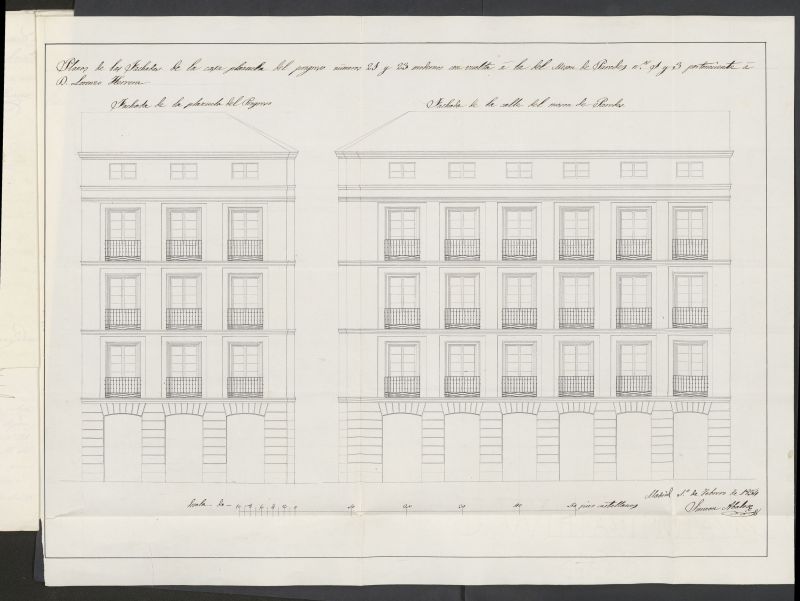 Plano de las Fachadas de la casa plazuela del progreso números 21 y 23 modernos con vuelta á la del Meson de Paredes n.os 1 y 3 perteneciente á
D. Lorenzo Herrera
Fachada de la plazuela del Progreso
Fachada de la calle del meson de Paredes
Madrid 1.º de Febrero de
Escala de 10 8 6 4 2 0 10 20 30 40 50 pies castellanos
Simeon